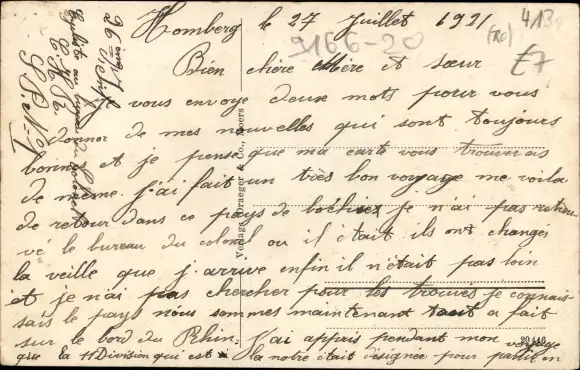 Homberg le 27 Juillet 1921
Bien chère Mère et sœur
Je vous envoye deux mots pour vous
donner de mes nouvelles qui sont toujours
bonnes et je pense que ma carte vous trouverais
de même. J'ai fait un très bon voyage me voila
de retour dans ce pays de boches je n'ai pas retrou
vé le bureau du colonel ou il était ils ont changés
la veille que j'arrive enfin il n'était pas loin
et je n'ai pas chercher pour les trouvés je connais-
sais le pays nous sommes maintenant tout a fait
sur le bord du Rhin. J'ai appris pendant mon voyage
que la 11 Division qui est à la notre était désignée pour partir en
9166-20
413
£7
Verlag: Draeger & Co.,
20446
S.P. No 1